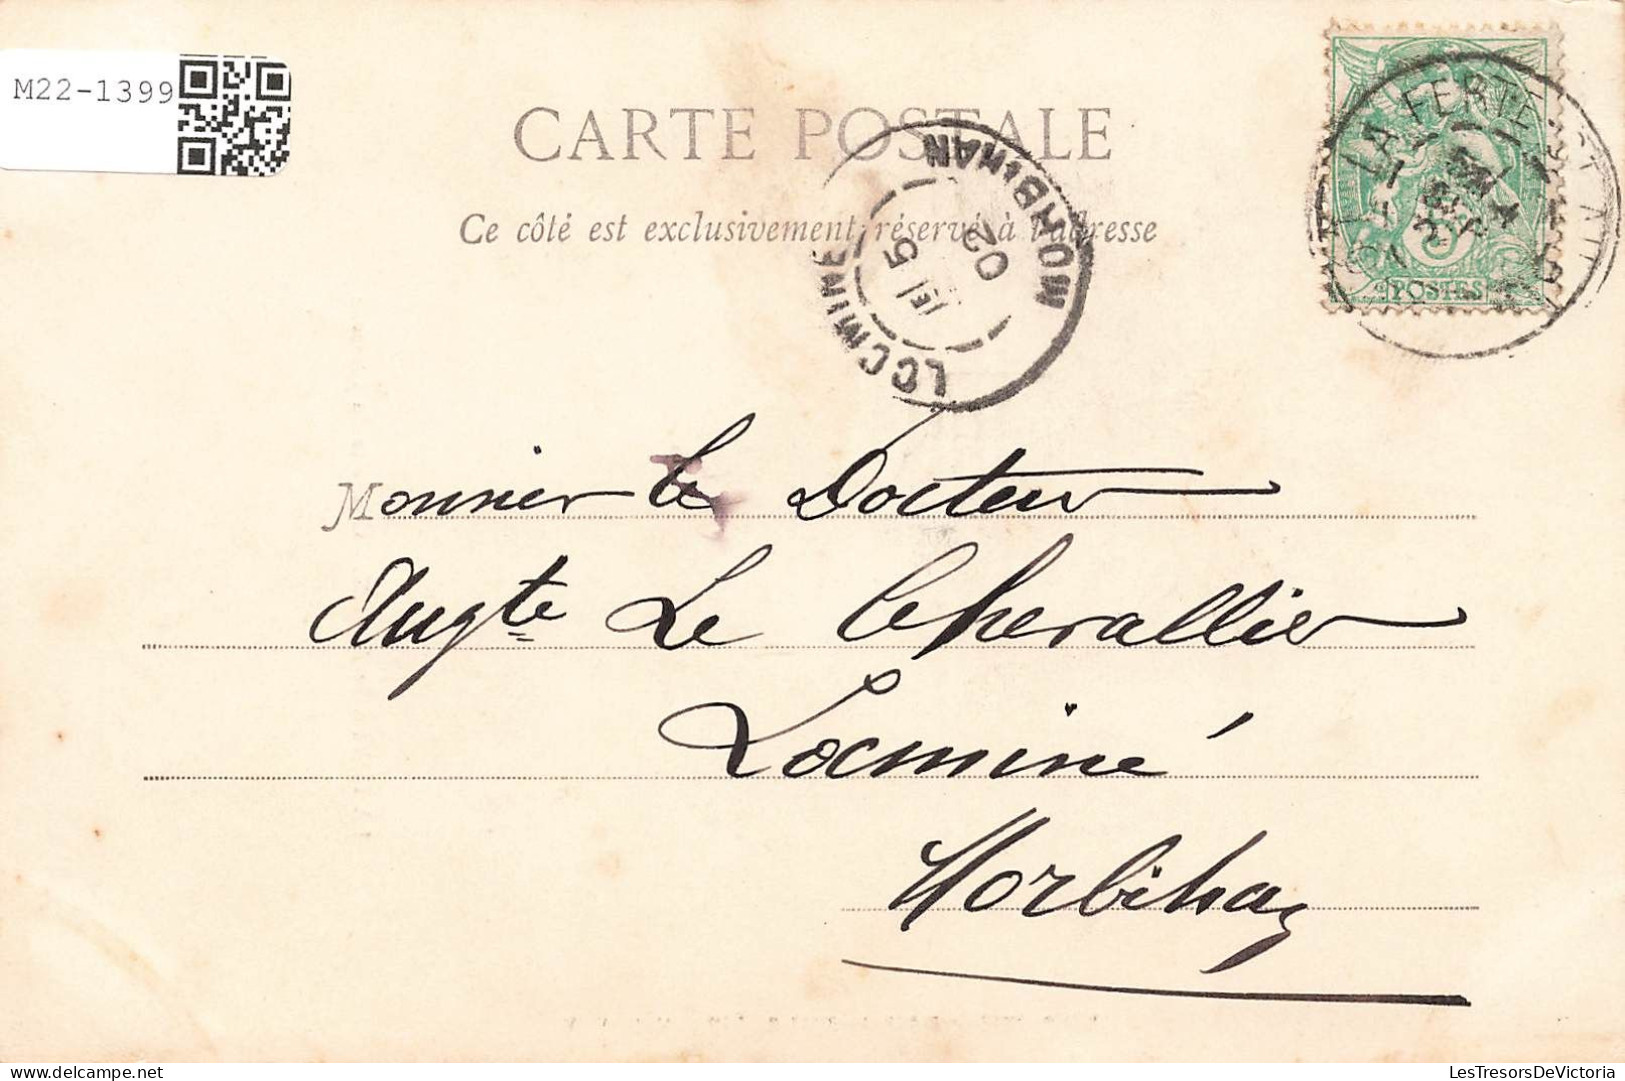 M22-1399
CARTE POSTALE
Ce côté est exclusivement réservé à l'adresse
LOCMINÉ
MORBIHAN
5
02
LA FERTÉ
POSTES
5
Monsieur le Docteur
Augte Le Chevallier
Locminé
Morbihan
LesTresorsDeVictoria